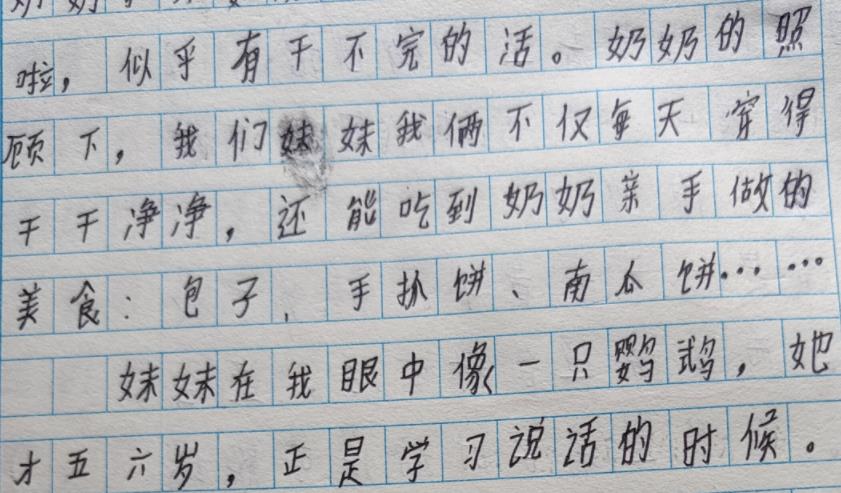 啦，似乎有干不完的活。奶奶的照
顾下，我们妹妹我俩不仅每天穿得
干干净净，还能吃到奶奶亲手做的
美食：包子、手扒饼、南瓜饼……
妹妹在我眼中像一只鹦鹉，她
才五六岁，正是学习说话的时候。